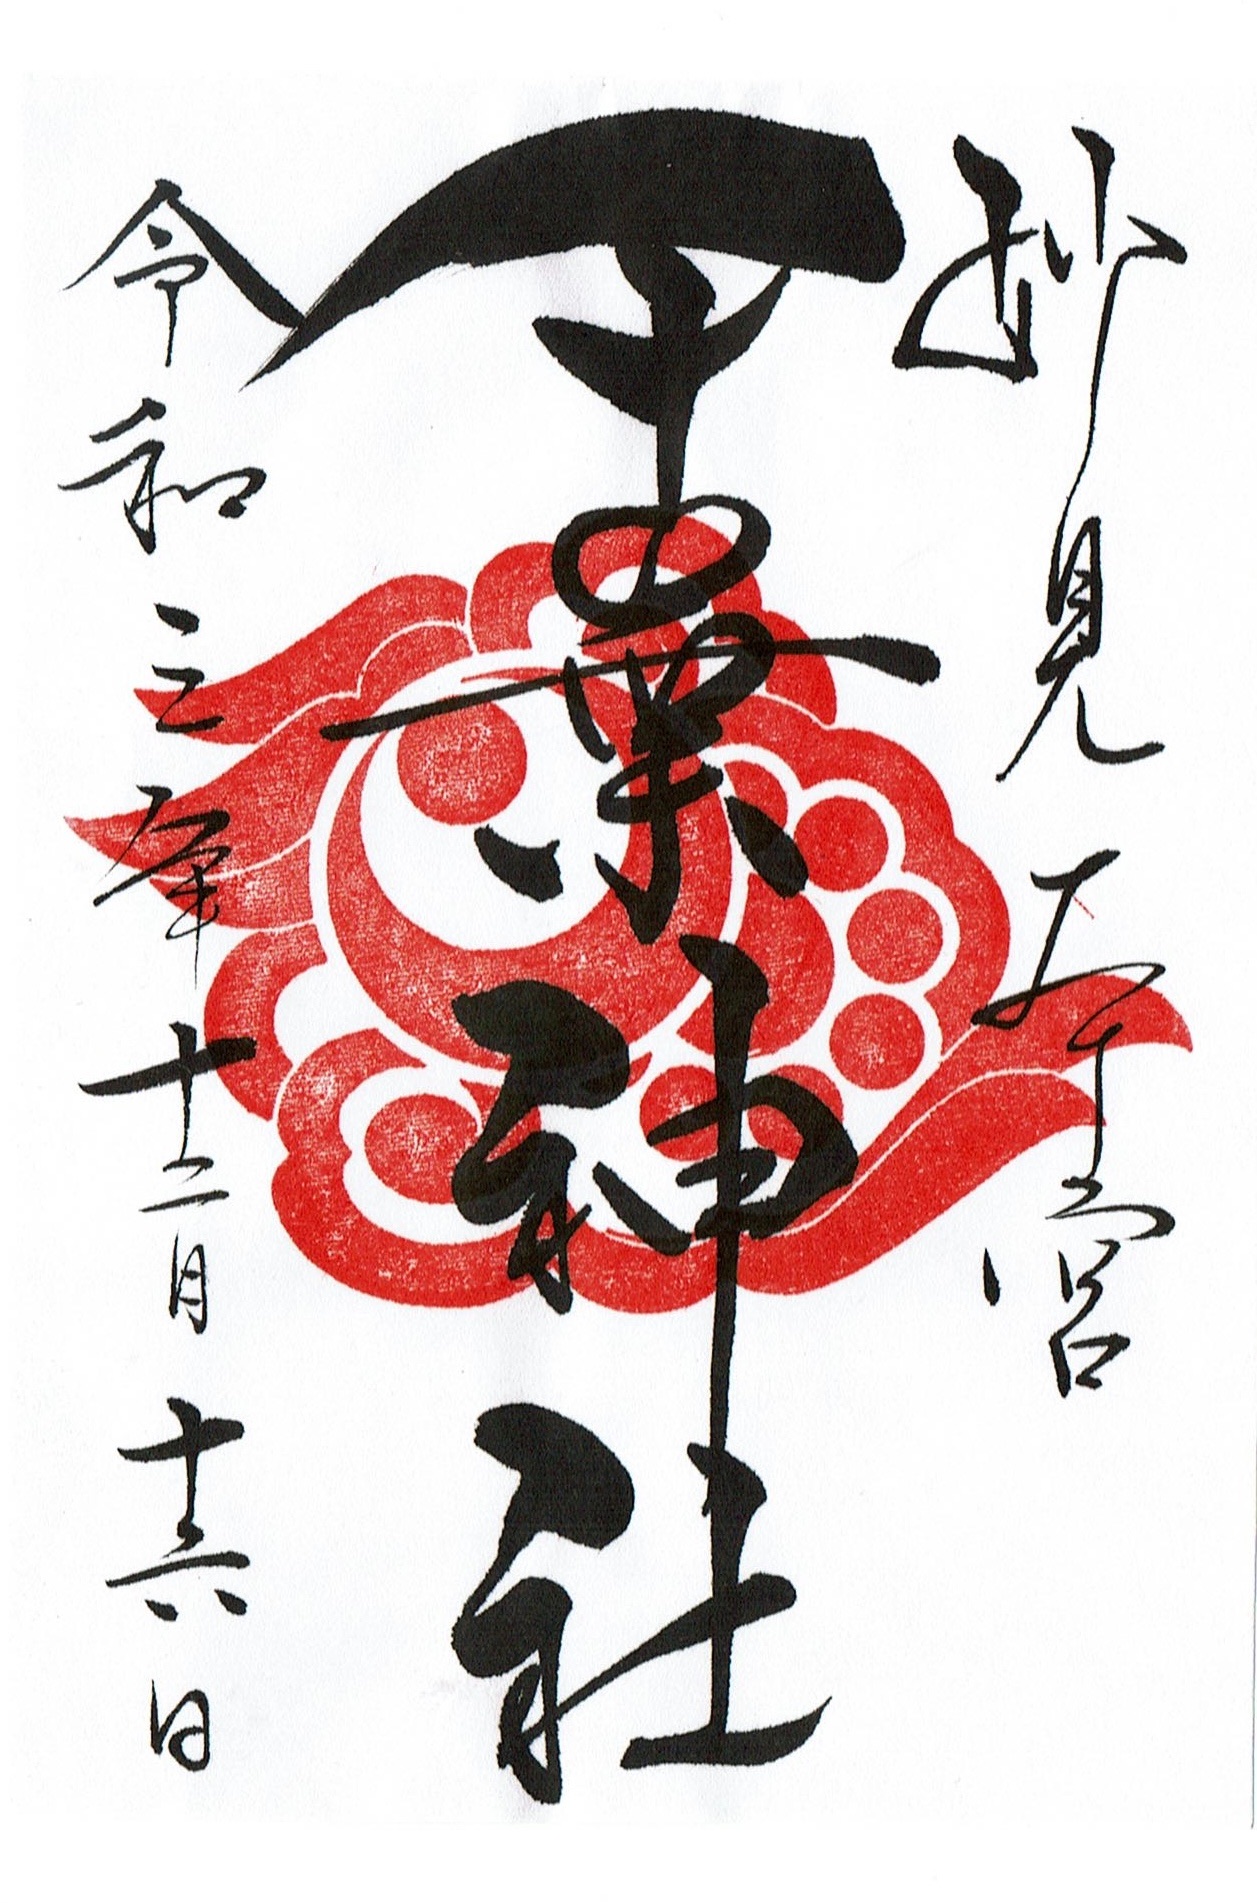 妙見本宮
千葉神社
令和三年十二月十六日